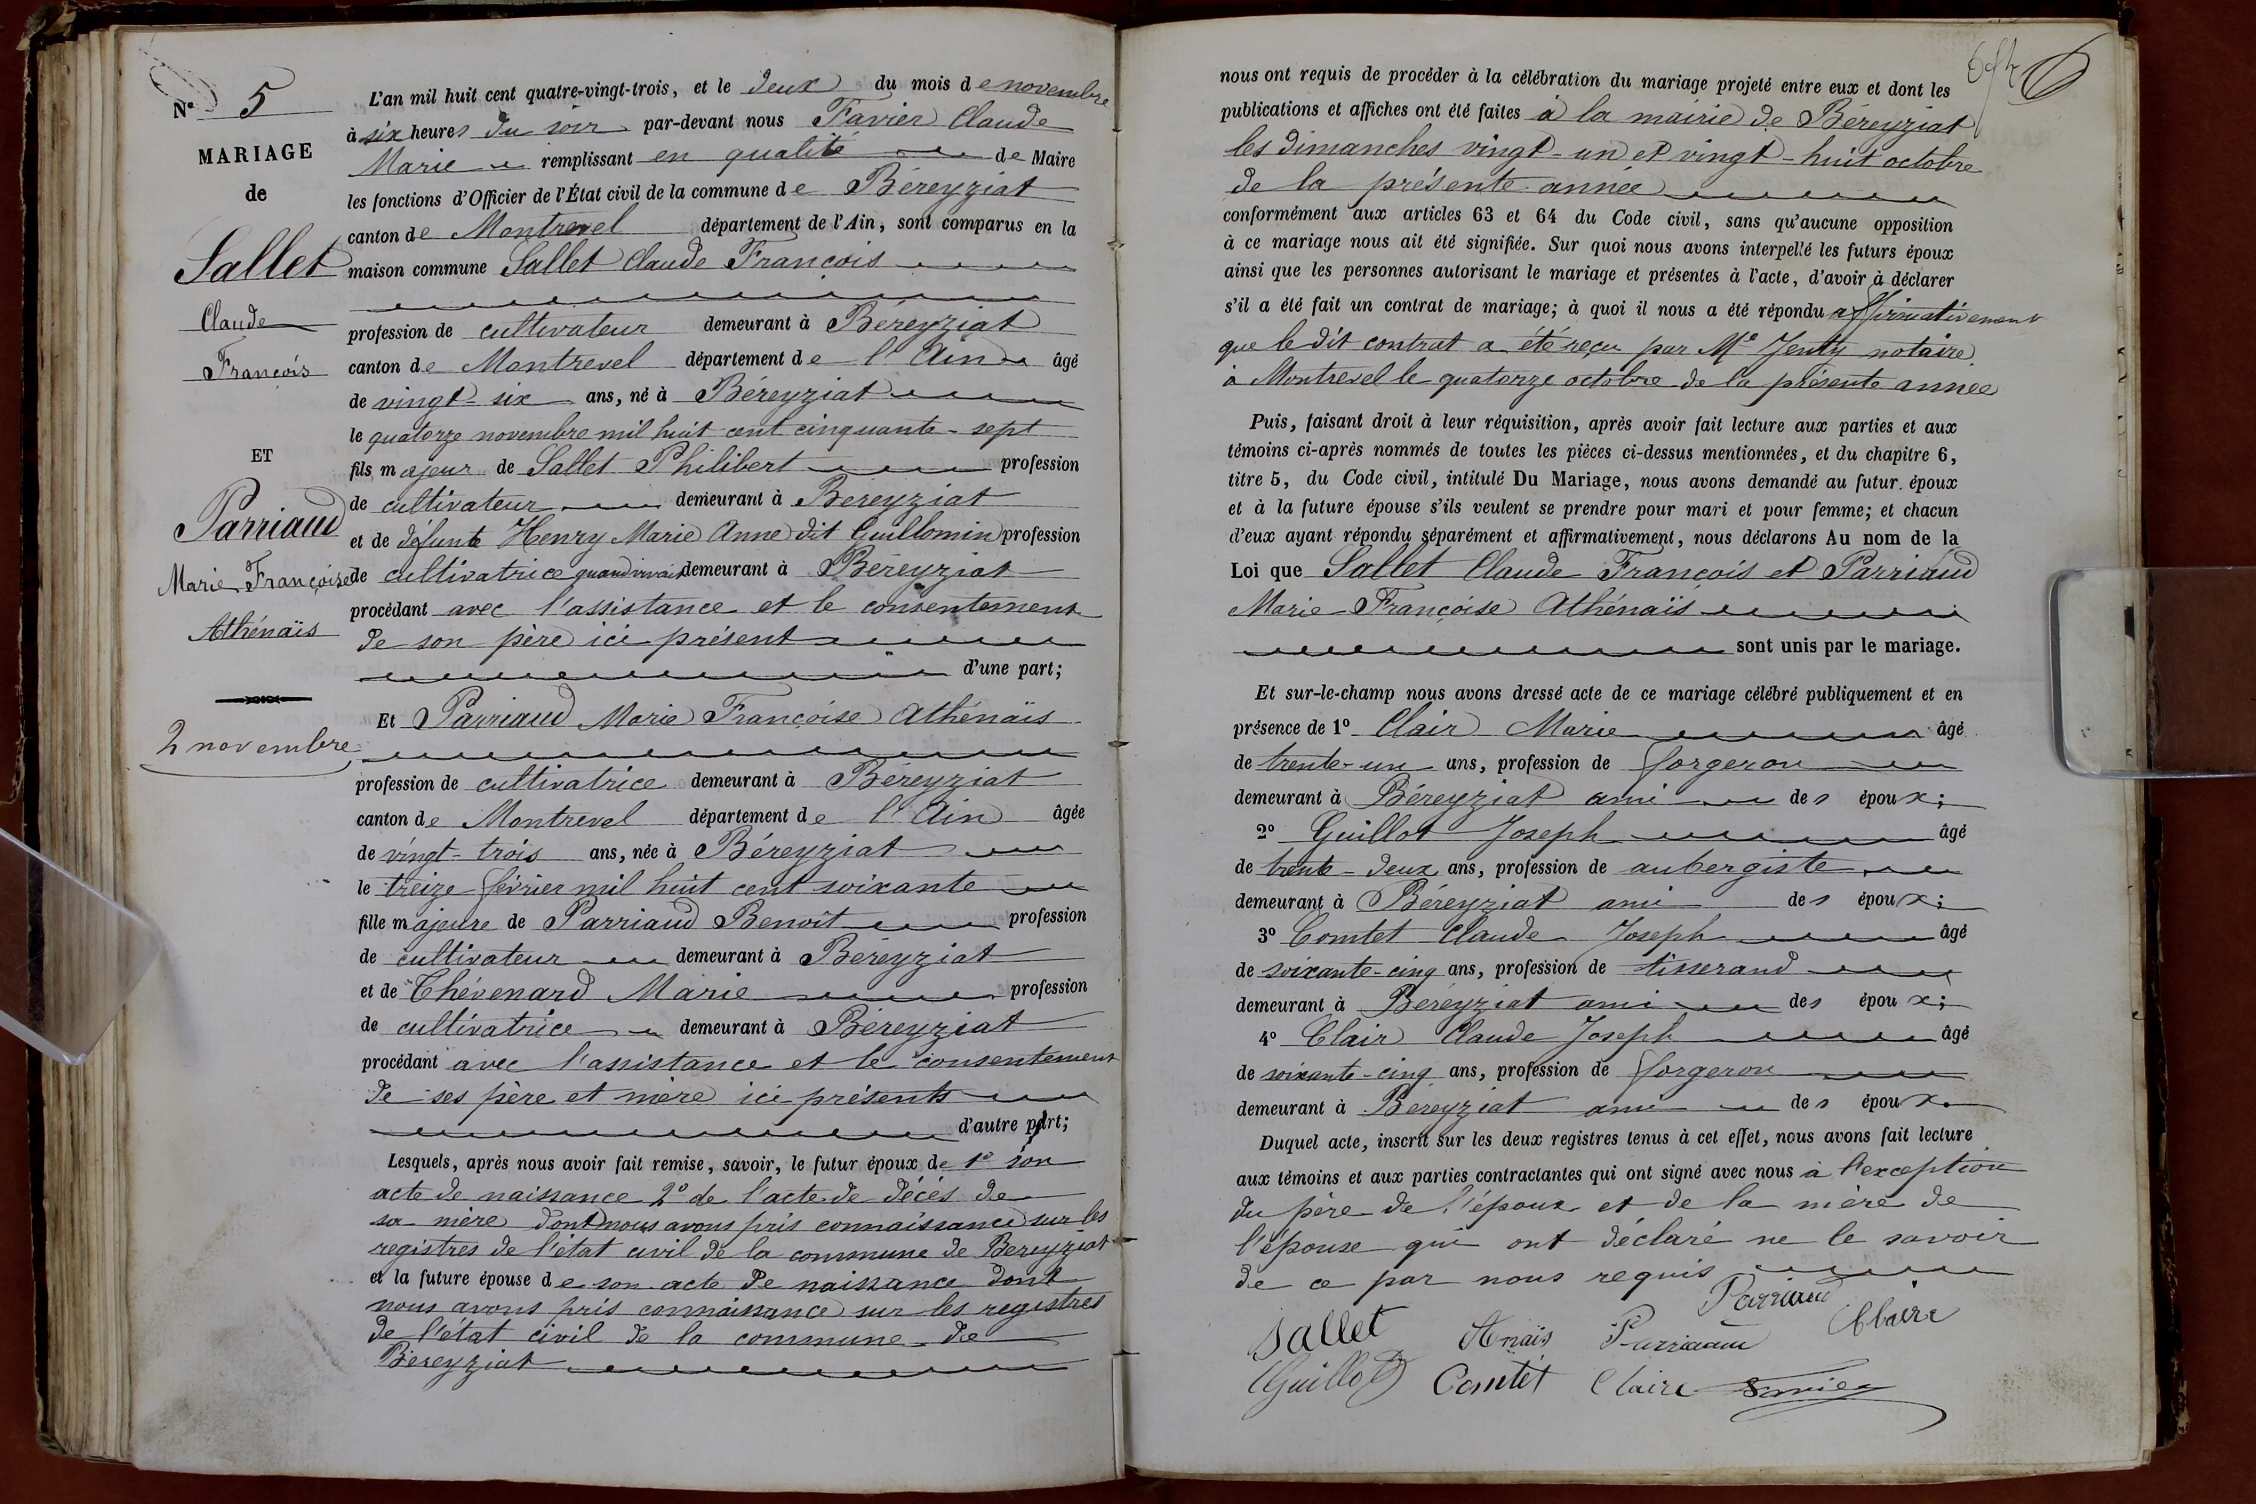 N° 5
MARIAGE
de
Sallet
Claude
François
ET
Parriaud
Marie Françoise
Athénaïs
2 novembre
L'an mil huit cent quatre-vingt-trois, et le deux du mois de novembre
à six heures du soir par-devant nous Favier Claude
Marie remplissant en qualité de Maire
les fonctions d'Officier de l'État civil de la commune de Béreyziat
canton de Montrevel département de l'Ain, sont comparus en la
maison commune Sallet Claude François
profession de cultivateur demeurant à Béreyziat
canton de Montrevel département de l'Ain âgé
de vingt-six ans, né à Béreyziat
le quatorze novembre mil huit cent cinquante-sept
fils majeur de Sallet Philibert profession
de cultivateur demeurant à Bereyziat
et de défunte Henry Marie Anne dit Guillomin profession
de cultivatrice quand vivait demeurant à Béreyziat
procédant avec l'assistance et le consentement
de son père ici présent
d'une part;
Et Parriaud Marie Françoise Athénaïs
profession de cultivatrice demeurant à Béreyziat
canton de Montrevel département de l'Ain âgée
de vingt-trois ans, née à Béreyziat
le treize février mil huit cent soixante
fille majeure de Parriaud Benoît profession
de cultivateur demeurant à Béreyziat
et de Thévenard Marie profession
de cultivatrice demeurant à Béreyziat
procédant avec l'assistance et le consentement
de ses père et mère ici présents
d'autre part;
Lesquels, après nous avoir fait remise, savoir, le futur époux de 1° son
acte de naissance 2° de l'acte de décès de
sa mère dont nous avons pris connaissance sur les
registres de l'état civil de la commune de Bereyziat
et la future épouse de son acte de naissance dont
nous avons pris connaissance sur les registres
de l'état civil de la commune de
Béreyziat
nous ont requis de procéder à la célébration du mariage projeté entre eux et dont les
publications et affiches ont été faites à la mairie de Béreyziat
les dimanches vingt-un et vingt-huit octobre
de la présente année
conformément aux articles 63 et 64 du Code civil, sans qu'aucune opposition
à ce mariage nous ait été signifiée. Sur quoi nous avons interpellé les futurs époux
ainsi que les personnes autorisant le mariage et présentes à l'acte, d'avoir à déclarer
s'il a été fait un contrat de mariage; à quoi il nous a été répondu affirmativement
que le dit contrat a été reçu par Me Jenty notaire
à Montrevel le quatorze octobre de la présente année
Puis, faisant droit à leur réquisition, après avoir fait lecture aux parties et aux
témoins ci-après nommés de toutes les pièces ci-dessus mentionnées, et du chapitre 6,
titre 5, du Code civil, intitulé Du Mariage, nous avons demandé au futur époux
et à la future épouse s'ils veulent se prendre pour mari et pour femme; et chacun
d'eux ayant répondu séparément et affirmativement, nous déclarons Au nom de la
Loi que Sallet Claude François et Parriaud
Marie Françoise Athénaïs
sont unis par le mariage.
Et sur-le-champ nous avons dressé acte de ce mariage célébré publiquement et en
présence de 1° Clair Marie âgé
de trente-un ans, profession de forgeron
demeurant à Béreyziat ami des époux;
2° Guillot Joseph âgé
de trente-deux ans, profession de aubergiste
demeurant à Béreyziat ami des époux;
3° Comtet Claude Joseph âgé
de soixante-cinq ans, profession de tisserand
demeurant à Béréyziat ami des époux;
4° Clair Claude Joseph âgé
de soixante-cinq ans, profession de forgeron
demeurant à Bereyziat ami des époux.
Duquel acte, inscrit sur les deux registres tenus à cet effet, nous avons fait lecture
aux témoins et aux parties contractantes qui ont signé avec nous à l'exception
du père de l'époux et de la mère de
l'épouse qui ont déclaré ne le savoir
de ce par nous requis
Parriaud
Sallet Anaïs Parriaud Claire
Guillot Comtet Claire Favier